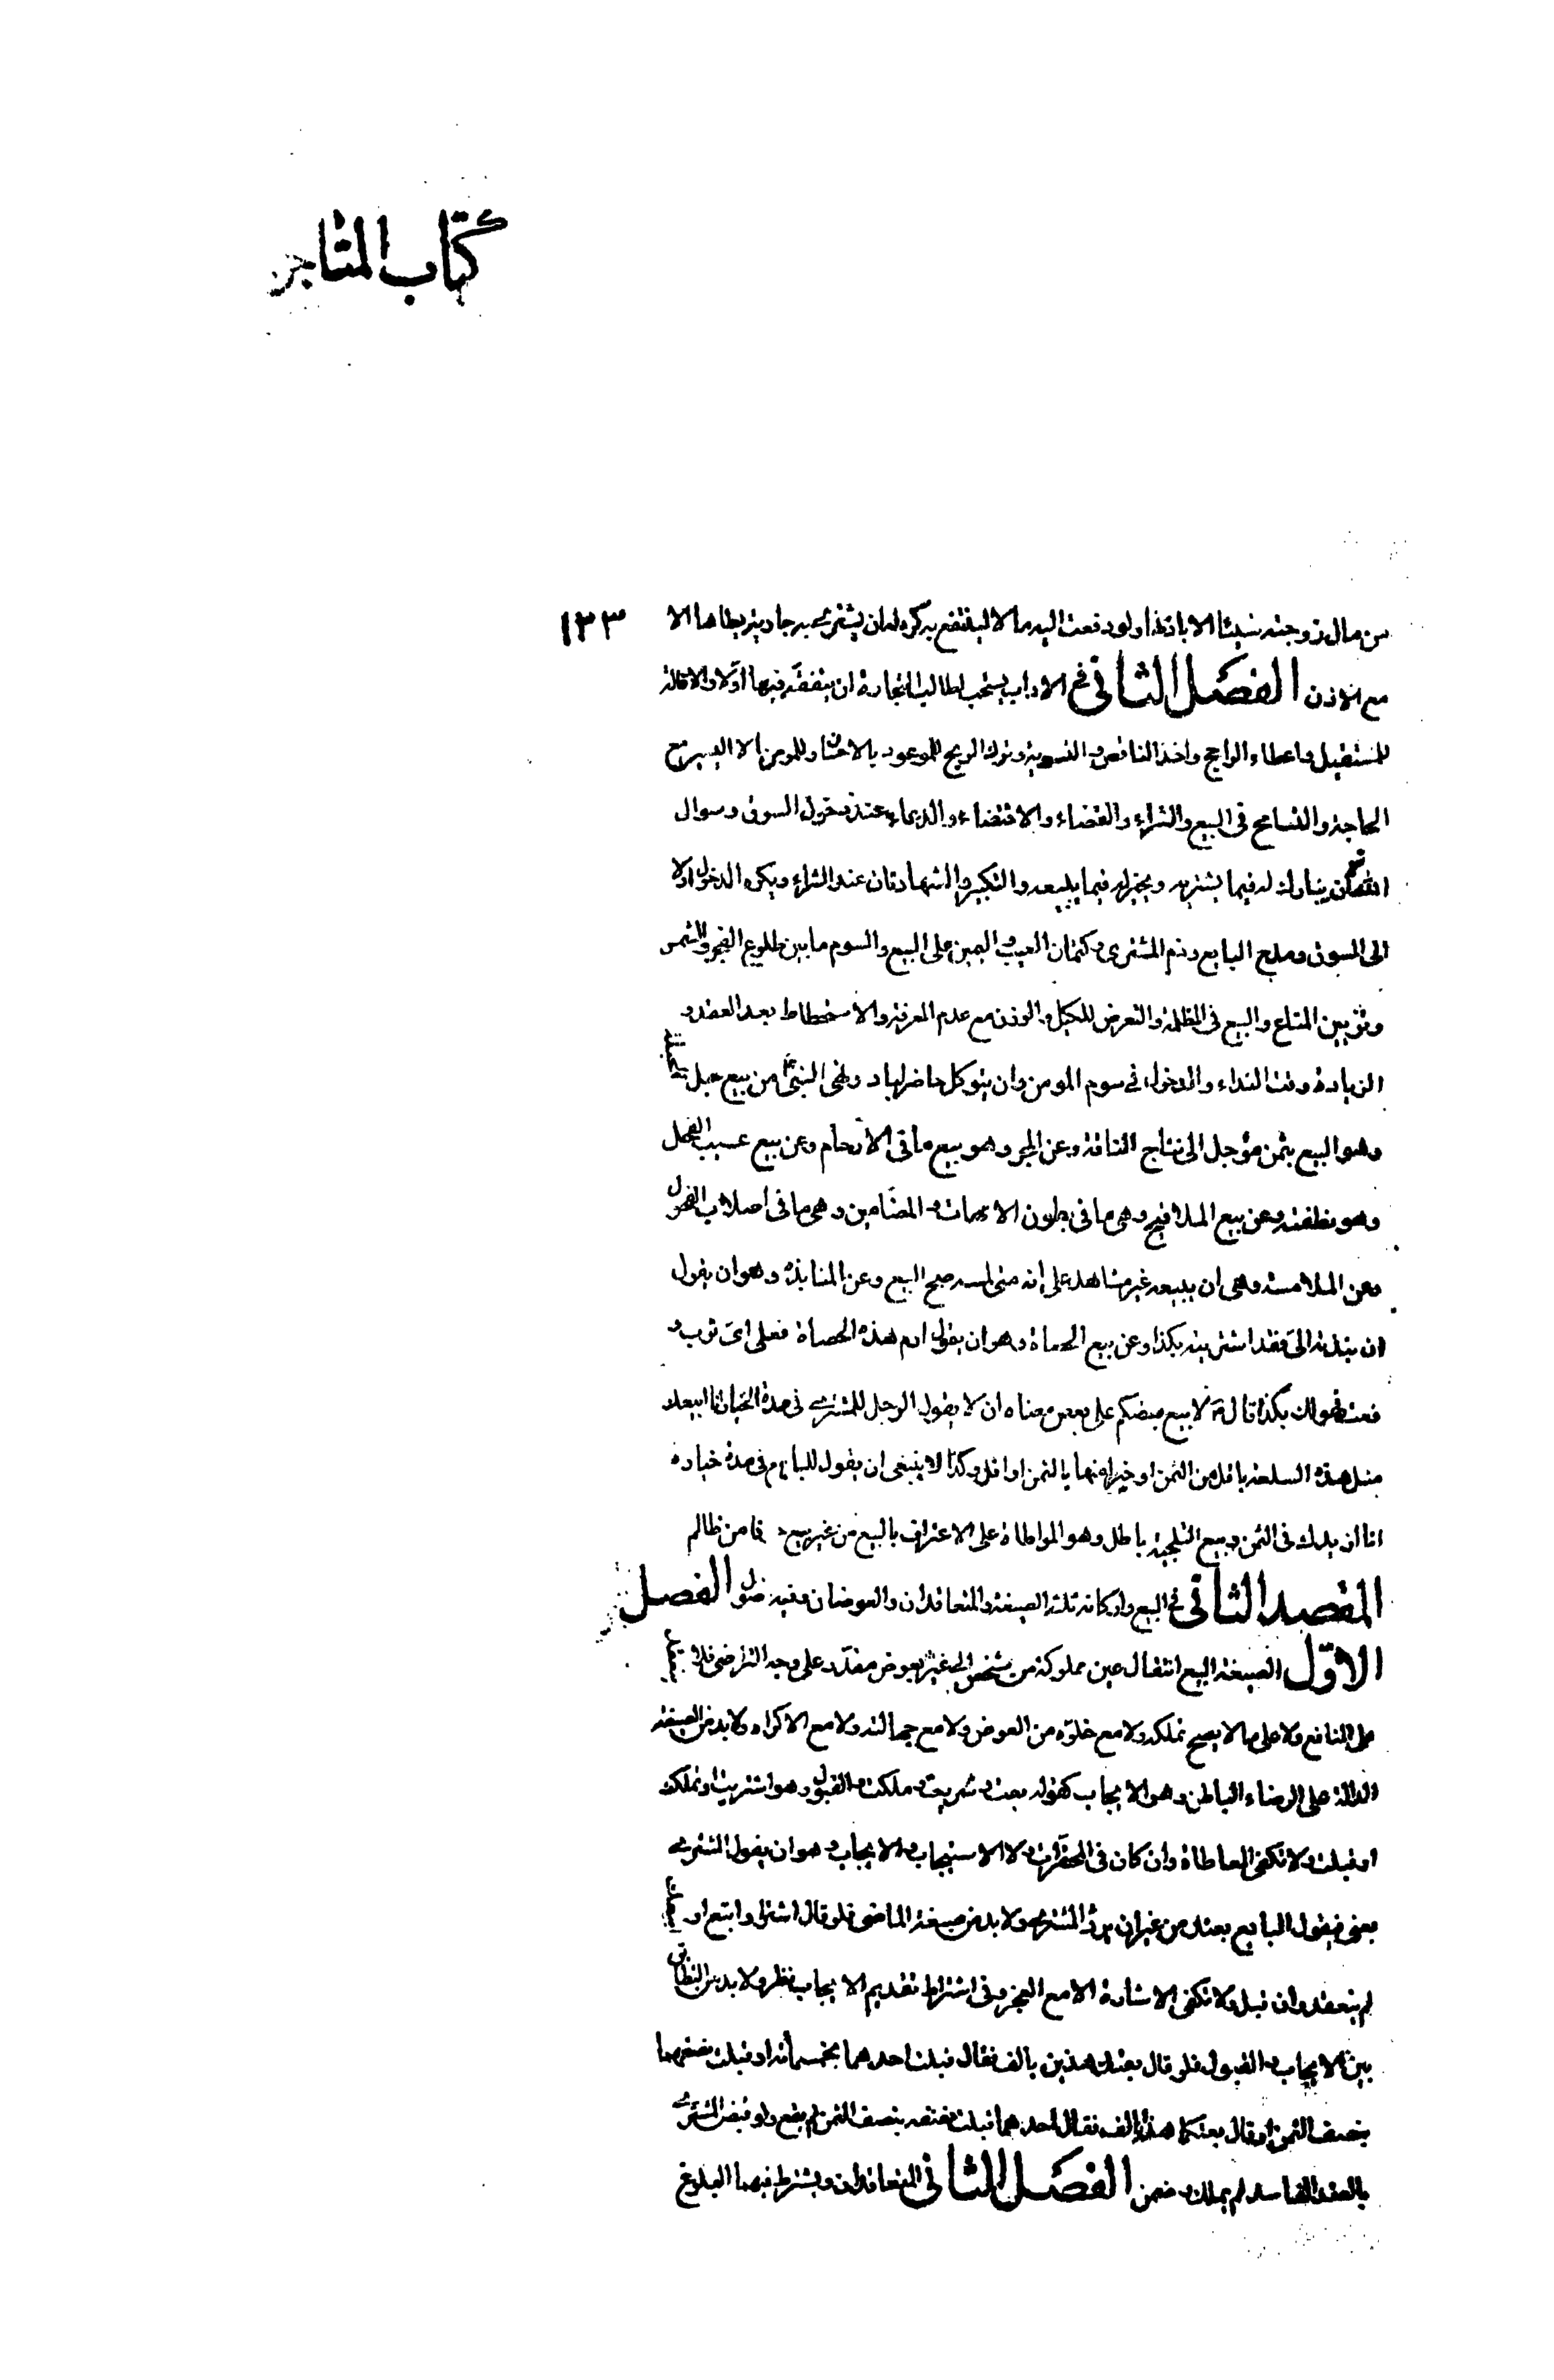 كتاب المتاجر
١٣٣
من مال زوجته شيئا الا باذنها ولو دفعت اليه مالا لينتفع به كره له ان يشترى به جارية يطاها الا
مع الاذن الفصل الثانى فى الاداب يستحب لطالب التجارة ان يتفقه فيها اولا والاقالة
للمستقيل واعطاء الراجح واخذ الناقص والتسوية وترك الربح للموعود بالاحسان وللمومن الا اليسير مع
الحاجة والتسامح فى البيع والشراء والقضاء والاقتضاء والدعاء عند دخول السوق وسوال
الله تعالى ان يبارك له فيما يشتريه ويخير له فيما يبيعه والتكبير والشهادتان عند الشراء ويكره الدخول اولا
الى السوق ومدح البايع وذم المشترى وكتمان العيب واليمين على البيع والسوم ما بين طلوع الفجر والشمس
وتزيين المتاع والبيع فى المظلمة والتعرض للكيل والوزن مع عدم المعرفة والاستحطاط بعد العقد و
الزيادة وقت النداء والدخول فى سوم المومن وان يتوكل حاضر لباد ونهى النبى ص عن بيع حبل الحبلة
وهو البيع بثمن مؤجل الى نتاج الناقة وعن المجر وهو بيع ما فى الارحام وعن بيع عسيب الفحل
وهو نطفته وعن بيع الملاقيح وهى ما فى بطون الامهات والمضامين وهى ما فى اصلاب الفحول
وعن الملامسة وهى ان يبيعه غير مشاهد على انه متى لمسه صح البيع وعن المنابذة وهو ان يقول
ان نبذته الى فقد اشتريته بكذا وعن بيع الحصاة وهو ان يقول ارم هذه الحصاة فعلى اى ثوب و
قعت فهو لك بكذا قال ع لا يبيع بعضكم على بعض معناه ان لا يقول الرجل للمشترى فى مدة الخيار انا ابيعك
مثل هذه السلعة باقل من الثمن او خيرا منها بالثمن او اقل وكذا لا ينبغى ان يقول للبايع فى مدة خياره
انا ازيدك فى الثمن وبيع التلجئة باطل وهو المواطاة على الاعتراف بالبيع من غير بيع خوفا من ظالم
المقصد الثانى فى البيع واركانه ثلثة الصيغة والمتعاقدان والعوضان وفيه فصول الفصل
الاول الصيغة البيع انتقال عين مملوكة من شخص الى غيره بعوض مقدر على وجه التراضى فلا ينعقد
على المنافع ولا على ما لا يصح تملكه ولا مع خلوه من العوض ولا مع جهالته ولا مع الاكراه ولا بد من الصيغة
الدالة على الرضاء الباطن وهو الايجاب كقوله بعت وشريت وملكت والقبول وهو اشتريت او تملكت
او قبلت ولا تكفى المعاطاة وان كان فى المحقرات ولا الاستيجاب والايجاب وهو ان يقول المشترى
بعنى فيقول البايع بعتك من غير ان يرد المشترى ولا بد من صيغة الماضى فلو قال اشتر او ابتع او
لم ينعقد وان قبل ولا تكفى الاشارة الا مع العجز وفى اشتراط تقديم الايجاب نظر ولا بد من التطابق
بين الايجاب والقبول فلو قال بعتك هذين بالف فقال قبلت احدهما بخمسمائة او قبلت نصفهما
بنصف الثمن او قال بعتكما هذا بالف فقال احدهما قبلت نصفه بنصف الثمن لم يقع ولو قبض المشترى
بالعقد الفاسد لم يملك وضمن الفصل الثانى المتعاقدان ويشترط فيهما البلوغ